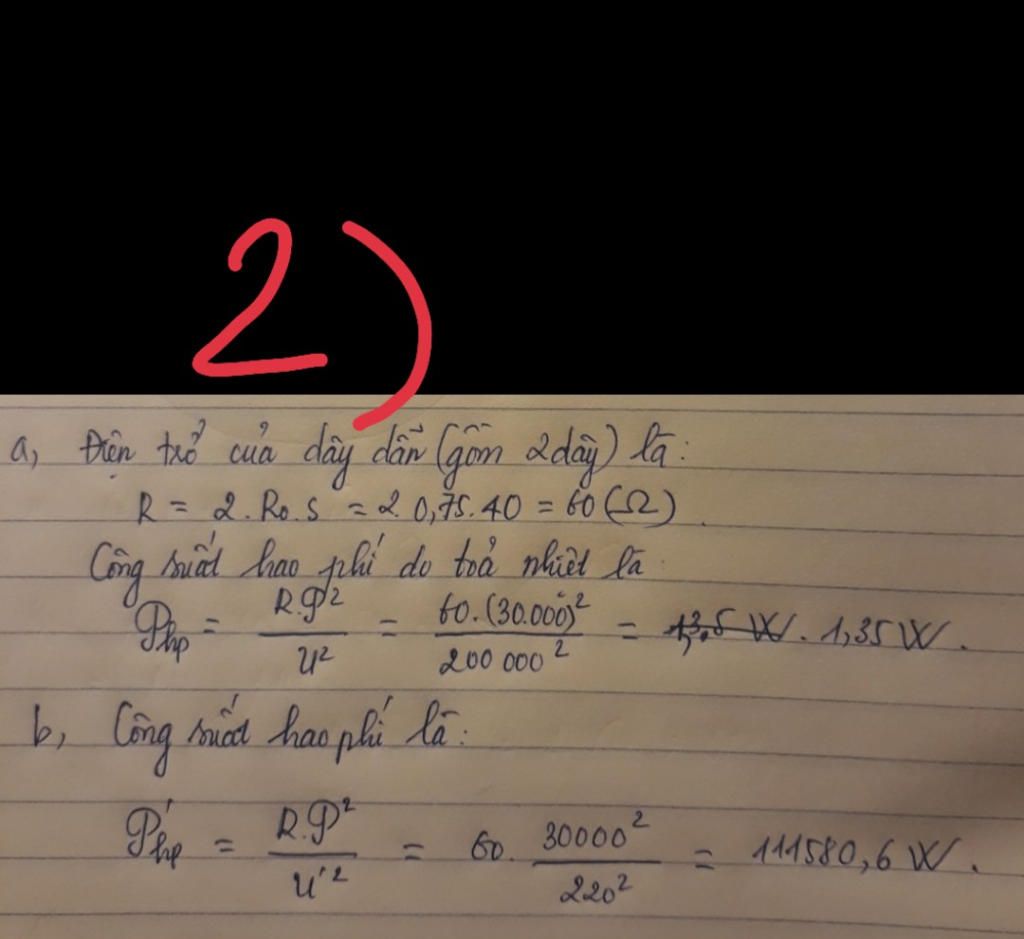 2)
a, Điện trở của dây dẫn (gồm 2 dây) là:
R = 2.R₀.S = 2.0,75.40 = 60 (Ω)
Công suất hao phí do toả nhiệt là
P_hp = R.P² / U² = 60.(30.000)² / 200 000² = 1,35 W.
b, Công suất hao phí là:
P'_hp = R.P² / U'² = 60. 30000² / 220² = 111580,6 W.